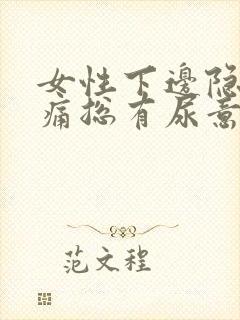 女性下邊隐
痛总有尿意
范文程